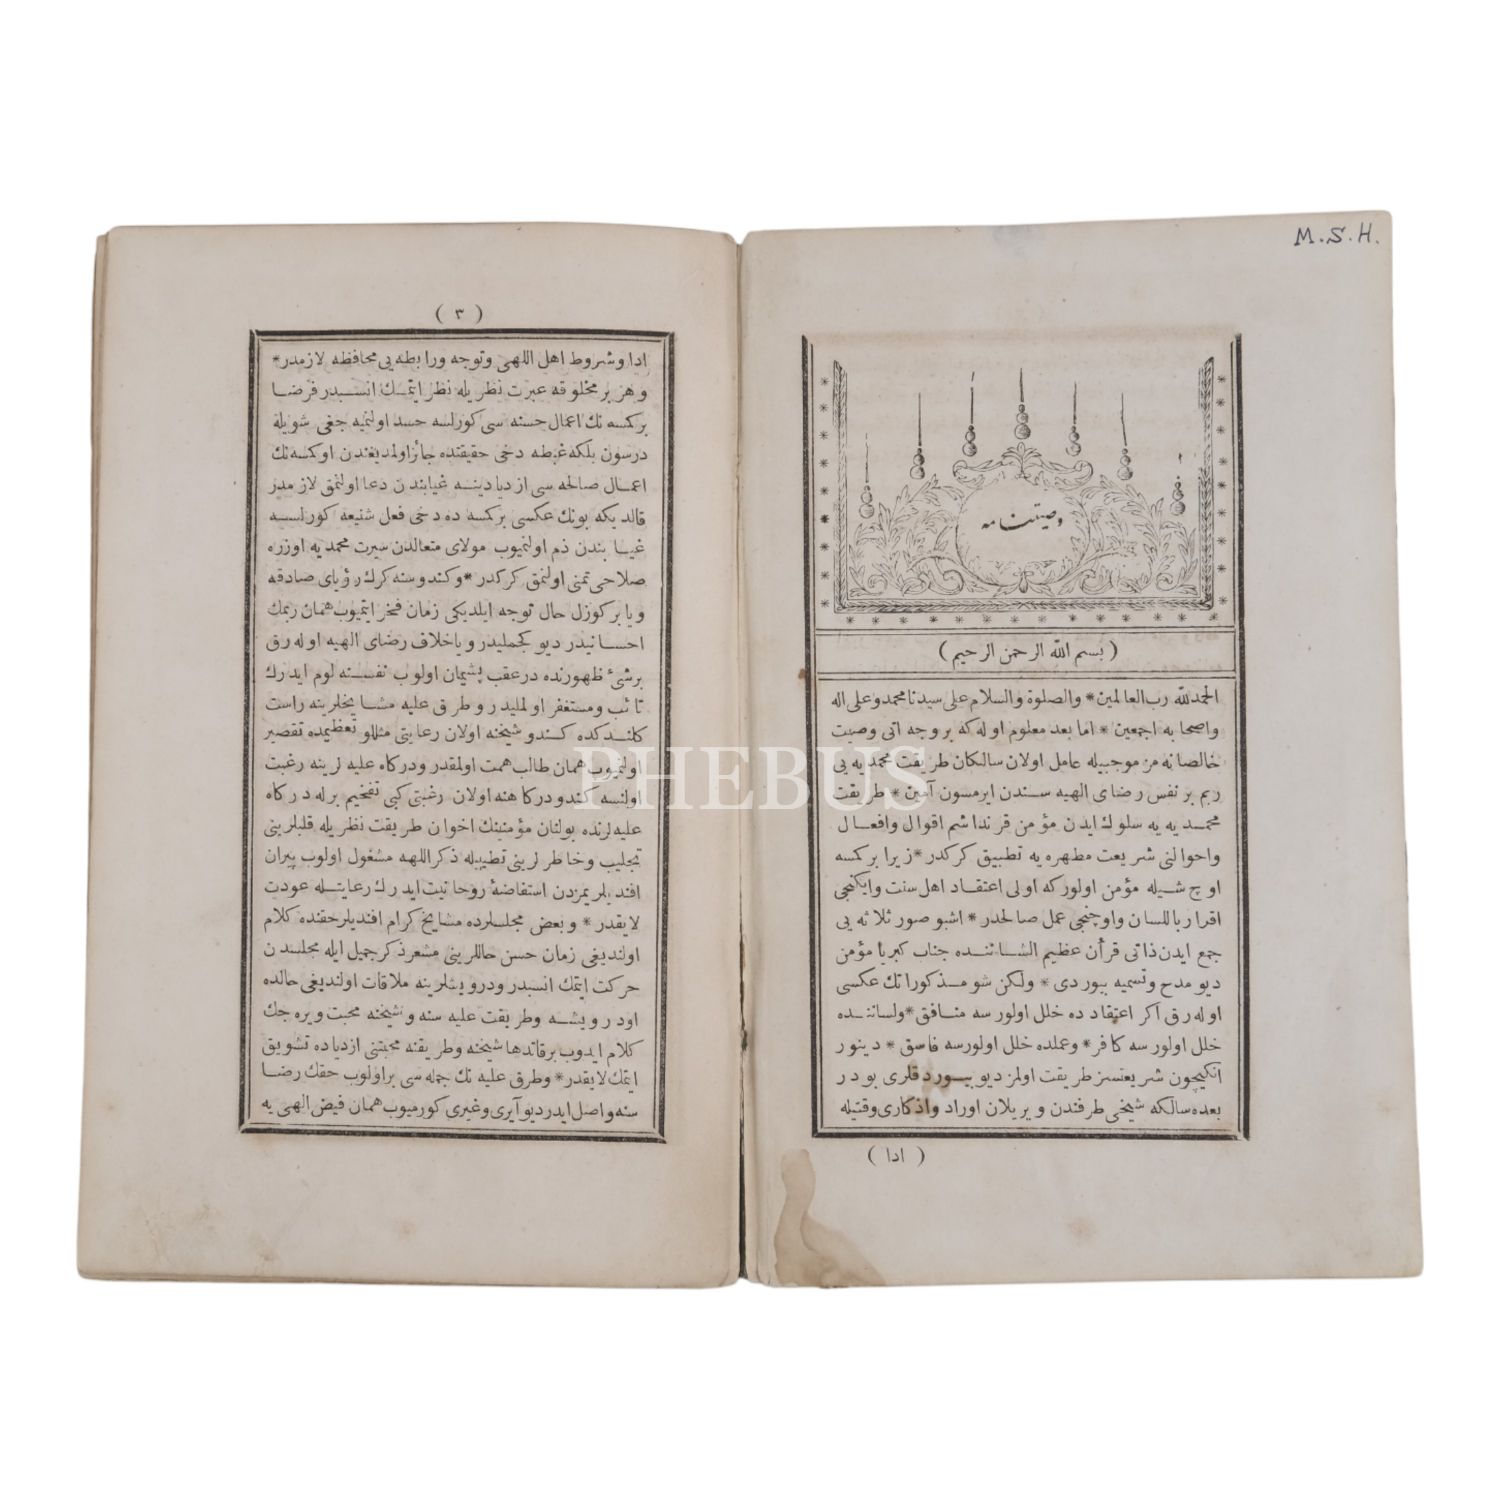 M.S.H.
وصيتنامه
( بسم الله الرحمن الرحيم )
الحمدلله رب العالمين * والصلوة والسلام على سيدنا محمد وعلى اله
واصحابه اجمعين * اما بعد معلوم اوله كه بر وجه اتى وصيت
خالصانه من موجبيله عامل اولان سالكان طريقت محمديه يى
ربم بر نفس رضاى الهيه سندن ايرمسون آمين * طريقت
محمديه يه سلوك ايدن مؤمن قرنداشم اقوال وافعال
واحوالنى شريعت مطهره يه تطبيق كركدر * زيرا بركسه
اوچ شيله مؤمن اولور كه اولى اعتقاد اهل سنت وايكنجى
اقرار باللسان واوچنجى عمل صالحدر * اشبو صور ثلاثه يى
جمع ايدن ذاتى قرأن عظيم الشاننده جناب كبريا مؤمن
ديو مدح وتسميه بيوردى * ولكن شو مذكوراتك عكسى
اوله رق اكر اعتقاد ده خلل اولورسه منافق * ولساننده
خلل اولورسه كافر * وعملده خلل اولورسه فاسق * دينور
انكيچون شريعتسز طريقت اولمز ديو بيوردقلرى بودر
بعده سالكه شيخى طرفندن ويريلان اوراد واذكارى وقتيله
( ادا )
( ٣ )
ادا وشروط اهل اللهى وتوجه ورابطه يى محافظه لازمدر *
وهر بر مخلوقه عبرت نظريله نظر ايتمك انسبدر فرضا
بركسه نك اعمال حسنه سى كورلسه حسد اولنميه جغى شويله
درسون بلكه غبطه دخى حقيقتده جائز اولمديغندن اوكسه نك
اعمال صالحه سى ازديادينه غيابندن دعا اولنمق لازمدر
قالديكه بونك عكسى بركسه ده دخى فعل شنيعه كورلسه
غيابندن ذم اولنميوب مولاى متعالدن سيرت محمديه اوزره
صلاحى تمنى اولنمق كركدر * وكندوسنه كرك رؤياى صادقه
ويا بر كوزل حال توجه ايلديكى زمان فخر ايتميوب همان ربمك
احسانيدر ديو كچملیدر ويا خلاف رضاى الهيه اوله رق
برشئ ظهورنده در عقب پشيمان اولوب نفسنه لوم ايدرك
تائب ومستغفر اولمليدر وطرق عليه مشايخلرينه راست
كلندكده كندو شيخنه اولان رعايتى مثللو تعظيمده تقصير
اولنميوب همان طالب همت اولمقدر ودركاه عليه لرينه رغبت
اولنسه كندو دركاهنه اولان رغبتى كبى تفخيم برله دركاه
عليه لرنده بولنان مؤمنينك اخوان طريقت نظريله قلبلرينى
تجليب وخاطرلرينى تطييبله ذكر اللهه مشغول اولوب پيران
افنديلريمزدن استفاضهٔ روحانيت ايدرك رعايتله عودت
لايقدر * وبعض مجلسلرده مشايخ كرام افنديلر حقنده كلام
اولنديغى زمان حسن حاللرينى مشعر ذكر جميل ايله مجلسدن
حركت ايتمك انسبدر ودرويشلرينه ملاقات اولنديغى حالده
اودرويشه وطريقت عليه سنه وشيخنه محبت ويره جك
كلام ايدوب برقاتدها شيخنه وطريقنه محبتنى ازدياده تشويق
ايتمك لايقدر * وطرق عليه نك جمله سى بر اولوب حقك رضا
سنه واصل ايدر ديو آيرى وغيرى كورميوب همان فيض الهى يه
PHEBUS